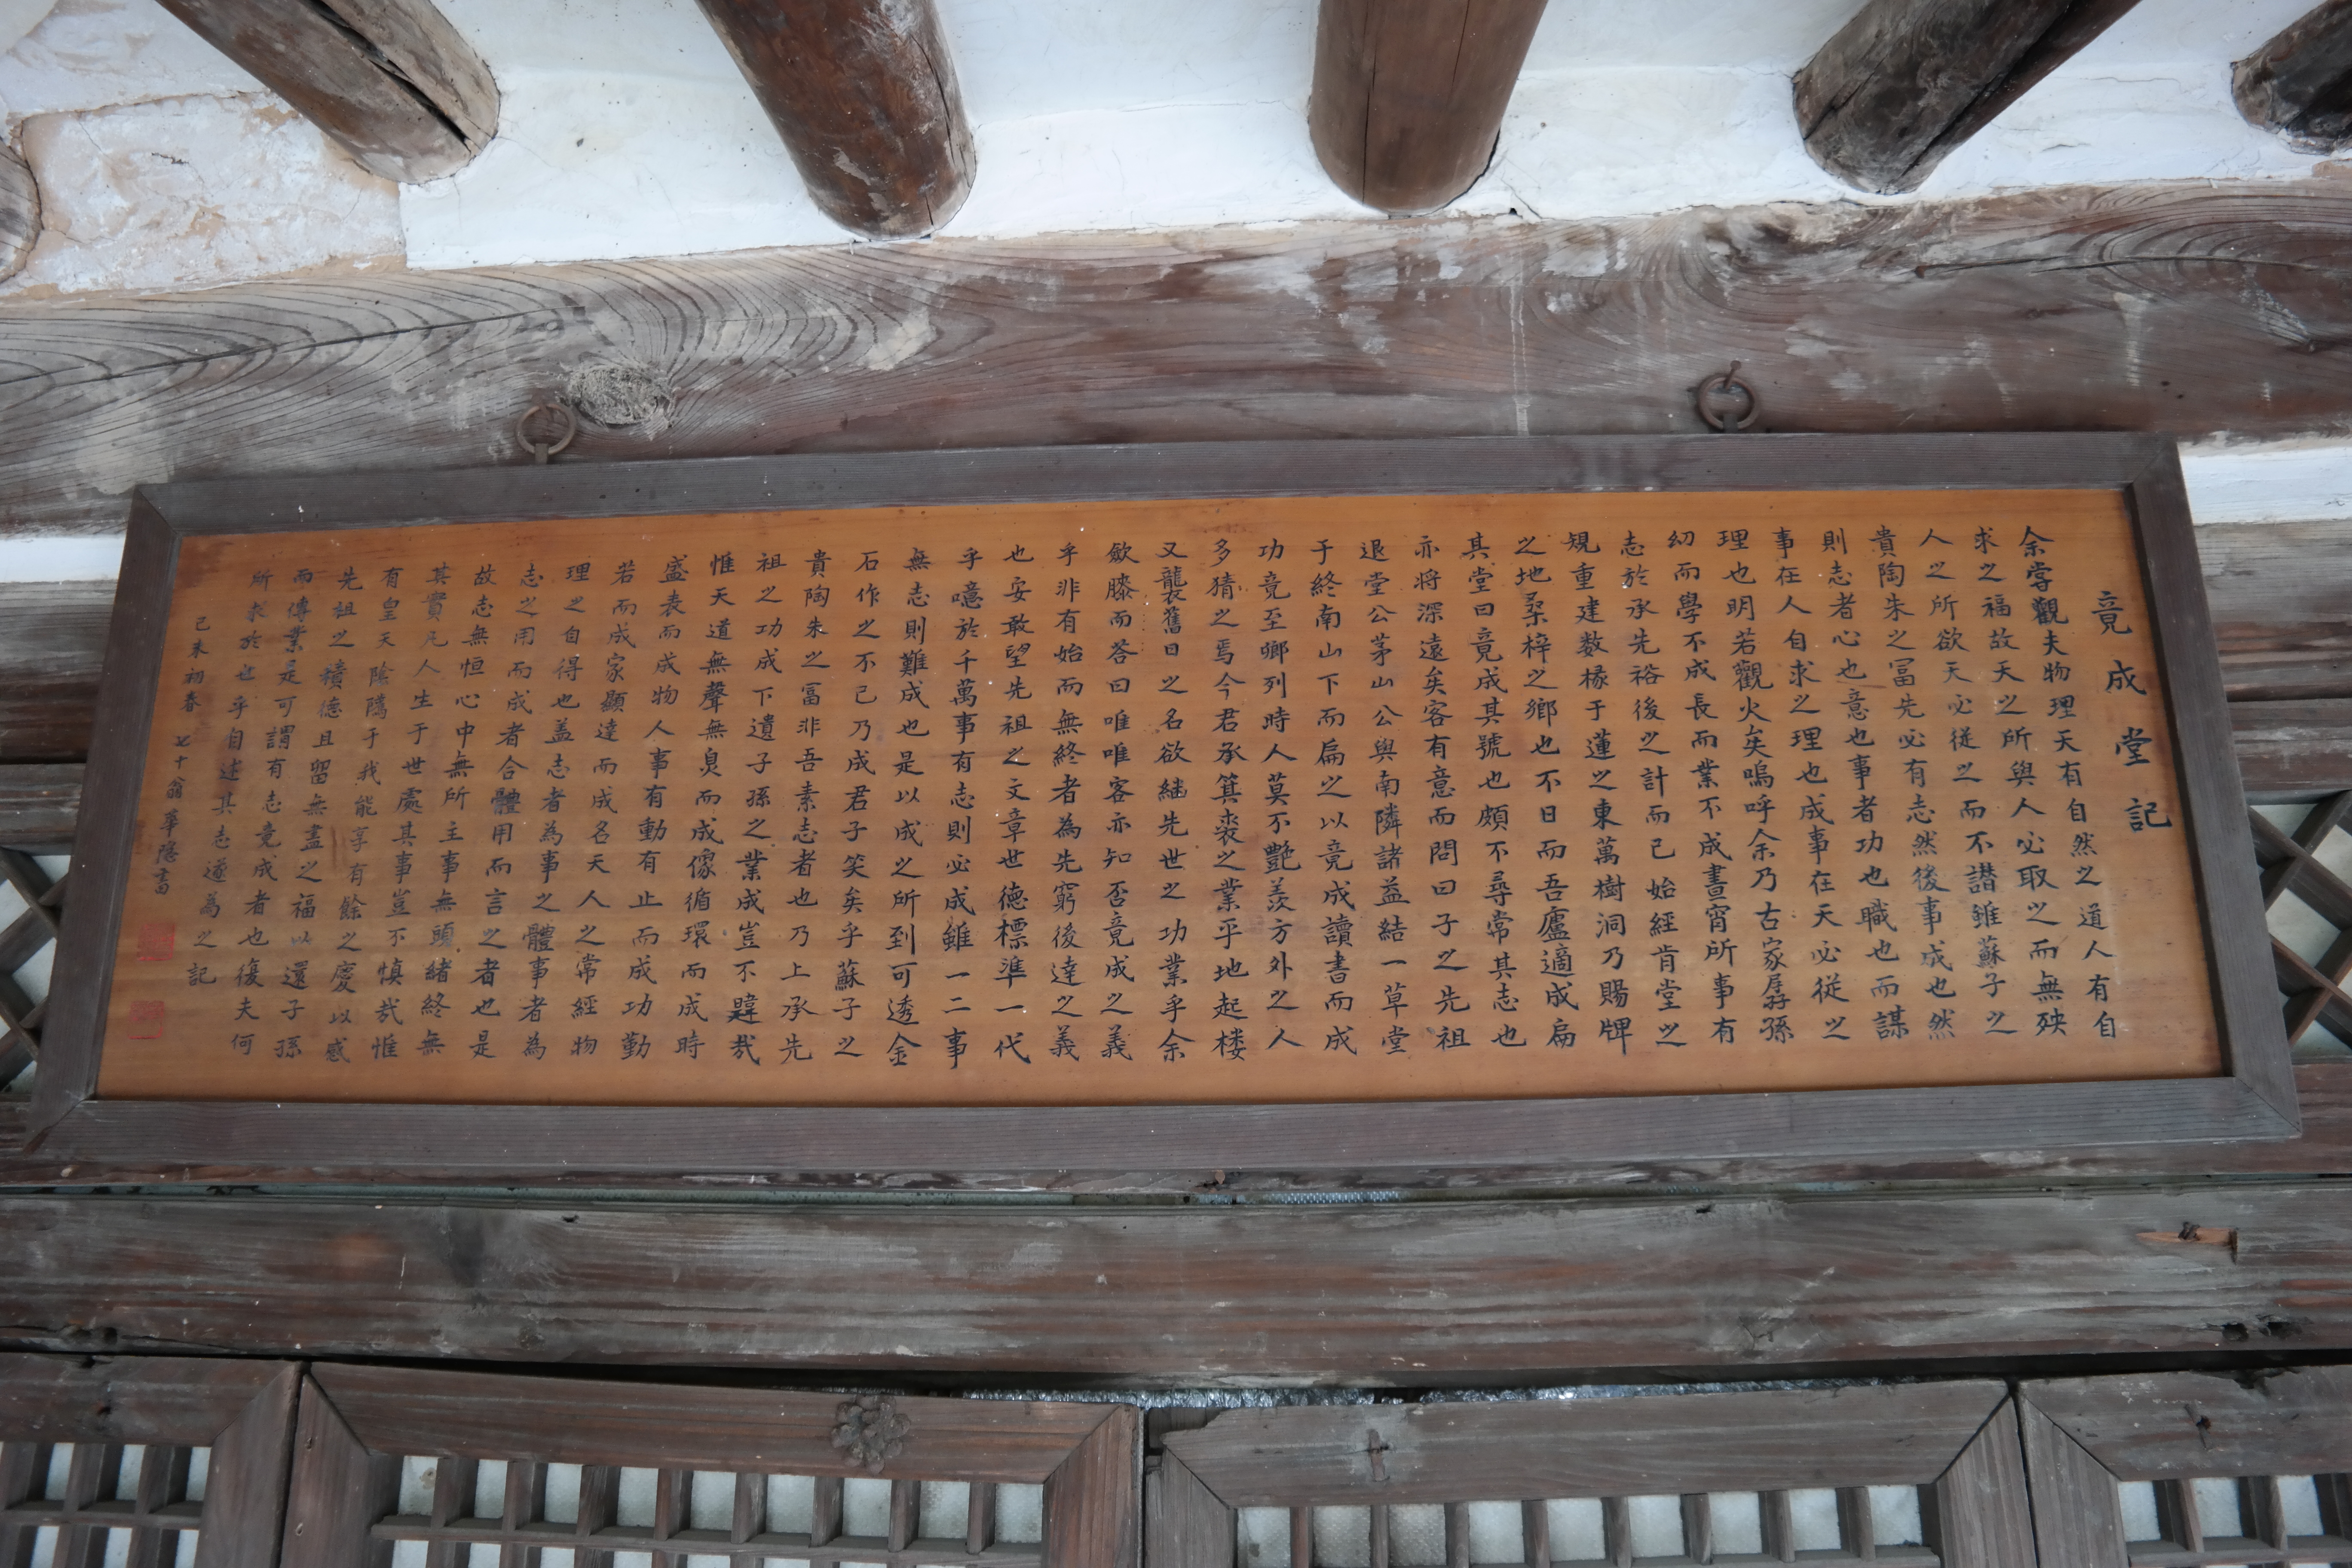 竟成堂記
余嘗觀夫物理天有自然之道人有自
求之福故天之所與人必取之而無殃
人之所欲天必從之而不譖雖蘇子之
貴陶朱之冨先必有志然後事成也然
則志者心也意也事者功也職也而謀
事在人自求之理也成事在天必從之
理也明若觀火矣嗚呼余乃古家孱孫
幻而學不成長而業不成晝宵所事有
志於承先裕後之計而已始經肯堂之
規重建数椽于蓮之東萬樹洞乃賜牌
之地桑梓之鄉也不日而吾廬適成扁
其堂曰竟成其號也頗不尋常其志也
亦将深遠矣客有意而問曰子之先祖
退堂公茅山公與南隣諸益結一草堂
于終南山下而扁之以竟成讀書而成
功竟至鄉列時人莫不艷羡方外之人
多猜之焉今君承箕裘之業平地起楼
又襲舊日之名欲繼先世之功業乎余
斂膝而答曰唯唯客亦知否竟成之義
乎非有始而無終者為先窮後達之義
也安敢望先祖之文章世德標準一代
乎噫於千萬事有志則必成雖一二事
無志則難成也是以成之所到可透金
石作之不已乃成君子笑矣乎蘇子之
貴陶朱之冨非吾素志者也乃上承先
祖之功成下遺子孫之業成豈不韙哉
惟天道無聲無臭而成像循環而成時
盛衰而成物人事有動有止而成功勤
若而成家顯達而成名天人之常經物
理之自得也盖志者為事之體事者為
志之用而成者合體用而言之者也是
故志無恒心中無所主事無頭緒終無
其實凡人生于世處其事豈不慎哉惟
有皇天陰騭于我能享有餘之慶以感
先祖之積德且留無盡之福以還子孫
而傳業是可謂有志竟成者也復夫何
所求於世乎自述其志遂為之記
己未初春 七十翁 華隱書